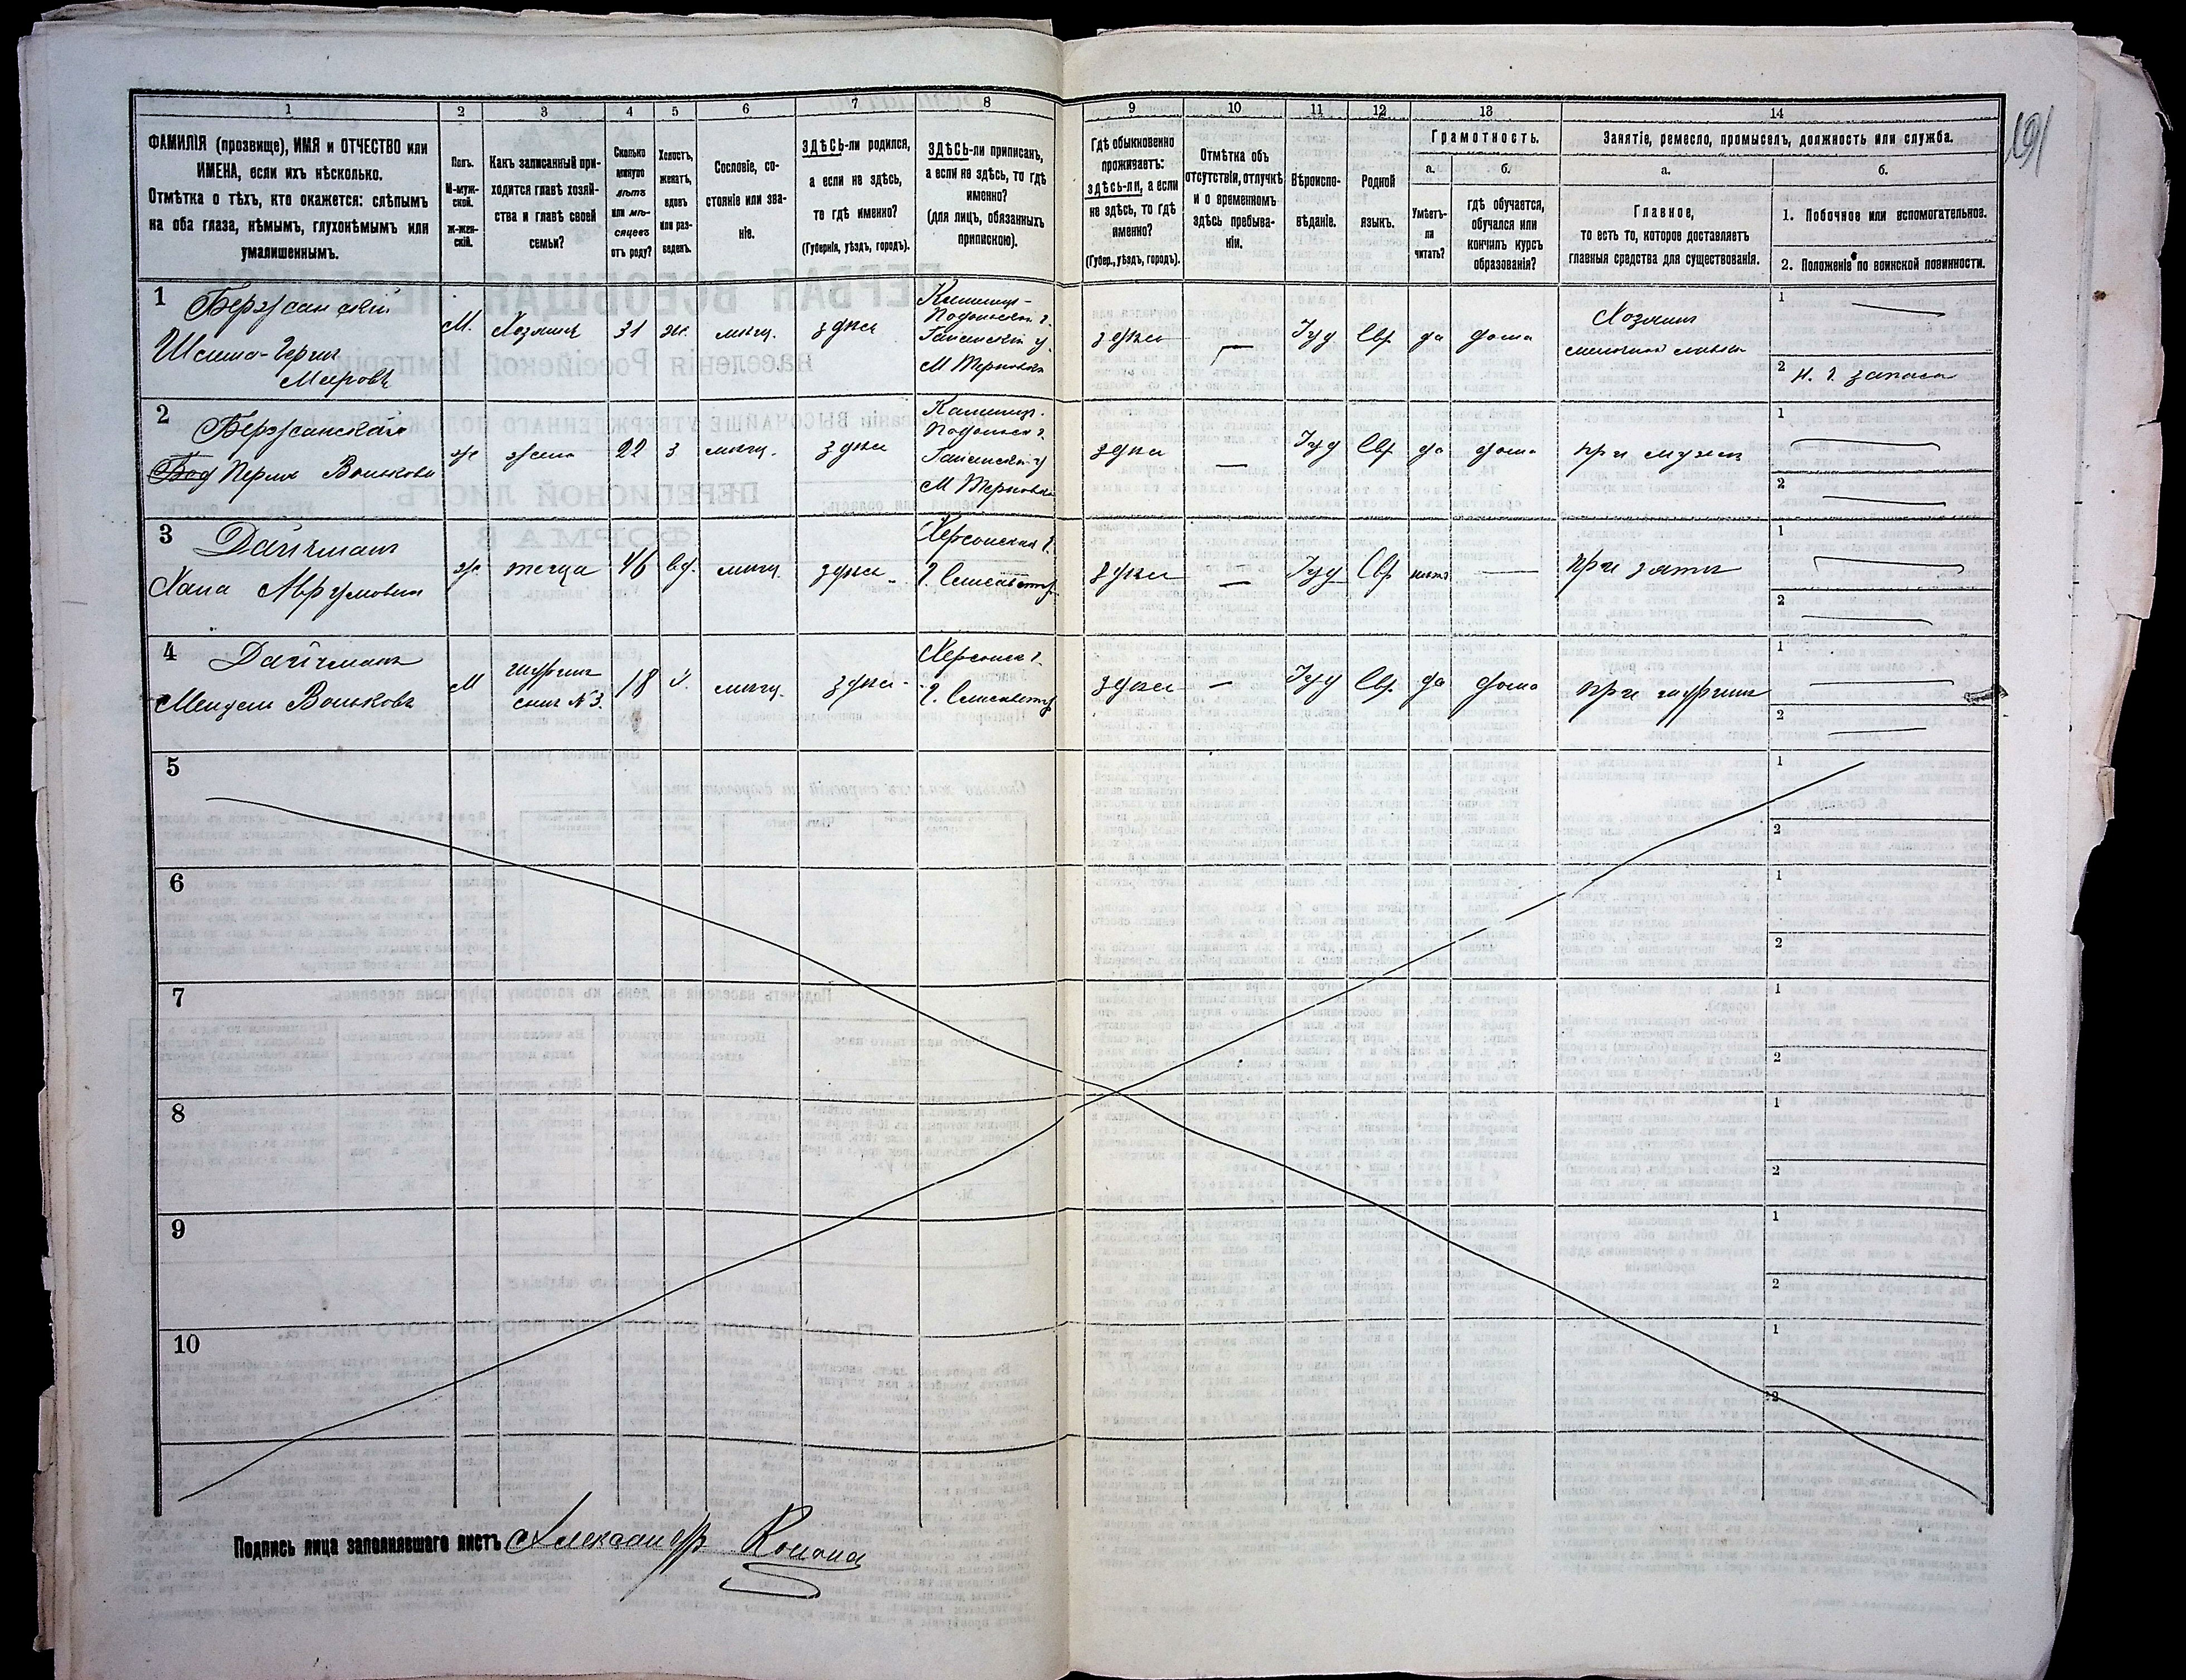 1 2 3 4 5 6 7 8 9 10 11 12 13 14
ФАМИЛІЯ (прозвище), ИМЯ и ОТЧЕСТВО или
ИМЕНА, если ихъ нѣсколько.
Отмѣтка о тѣхъ, кто окажется: слѣпымъ
на оба глаза, нѣмымъ, глухонѣмымъ или
умалишеннымъ.
Полъ.
М-муж-
ской.
Ж-жен-
скій.
Какъ записанный при-
ходится главѣ хозяй-
ства и главѣ своей
семьи?
Сколько
минуло
лѣтъ
или мѣ-
сяцевъ
отъ роду?
Холостъ,
женатъ,
вдовъ
или раз-
веденъ.
Сословіе, со-
стояніе или зва-
ніе.
ЗДѢСЬ-ли родился,
а если не здѣсь,
то гдѣ именно?
(Губернія, уѣздъ, городъ).
ЗДѢСЬ-ли приписанъ,
а если не здѣсь, то гдѣ
именно?
(для лицъ, обязанныхъ
припискою).
Гдѣ обыкновенно
проживаетъ:
здѣсь-ли, а если
не здѣсь, то гдѣ
именно?
(Губер., уѣздъ, городъ).
Отмѣтка объ
отсутствіи, отлучкѣ
и о временномъ
здѣсь пребыва-
ніи.
Вѣроиспо-
вѣданіе.
Родной
языкъ.
Грамотность.
а. б.
Умѣетъ-
ли
читать?
гдѣ обучается,
обучался или
кончилъ курсъ
образованія?
Занятіе, ремесло, промыселъ, должность или служба.
а. б.
Главное,
то есть то, которое доставляетъ
главныя средства для существованія.
1. Побочное или вспомогательное.
2. Положеніе по воинской повинности.
191
1 Бержанскій
Шлима-Герш
Мееровъ
М. Хозяинъ 31 ж. мѣщ. здѣсь
Подольской г.
здѣсь — Іуд Евр да дома
Хозяинъ
1 —
2 н. г. запаса
2 Бержанская
Перля Вольковна
ж жена 22 з мѣщ. здѣсь
Подольск г.
здѣсь — Іуд Евр да дома при мужѣ
1 —
2 —
3 Дайчманъ
Хана Аврумовна
ж теща 46 вд. мѣщ. здѣсь
Херсонская г.
г. Елисаветгр.
здѣсь — Іуд Евр нѣтъ — при зятѣ
1 —
2 —
4 Дайчманъ
Мендель Вольковъ
М шуринъ
сынъ №3. 18 х. мѣщ. здѣсь
Херсонск г.
г. Елисаветгр
здѣсь — Іуд Евр да дома при шуринѣ
1 —
2 —
5 1
2
6 1
2
7 1
2
8 1
2
9 1
2
10 1
2
Подпись лица заполнявшаго листъ Александр